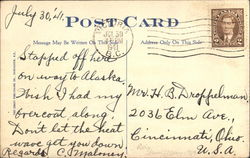 July 30, '41
POST CARD
Message May Be Written On This Side
Address Only On This Side
JUL 30
B.C.
Stopped off here
on way to Alaska.
Wish I had my
overcoat along.
Don't let the heat
wave get you down
Regards C. Maloney.
Mr. H. B. Droppelman
2036 Elm Ave.,
Cincinnati, Ohio.
U.S.A.